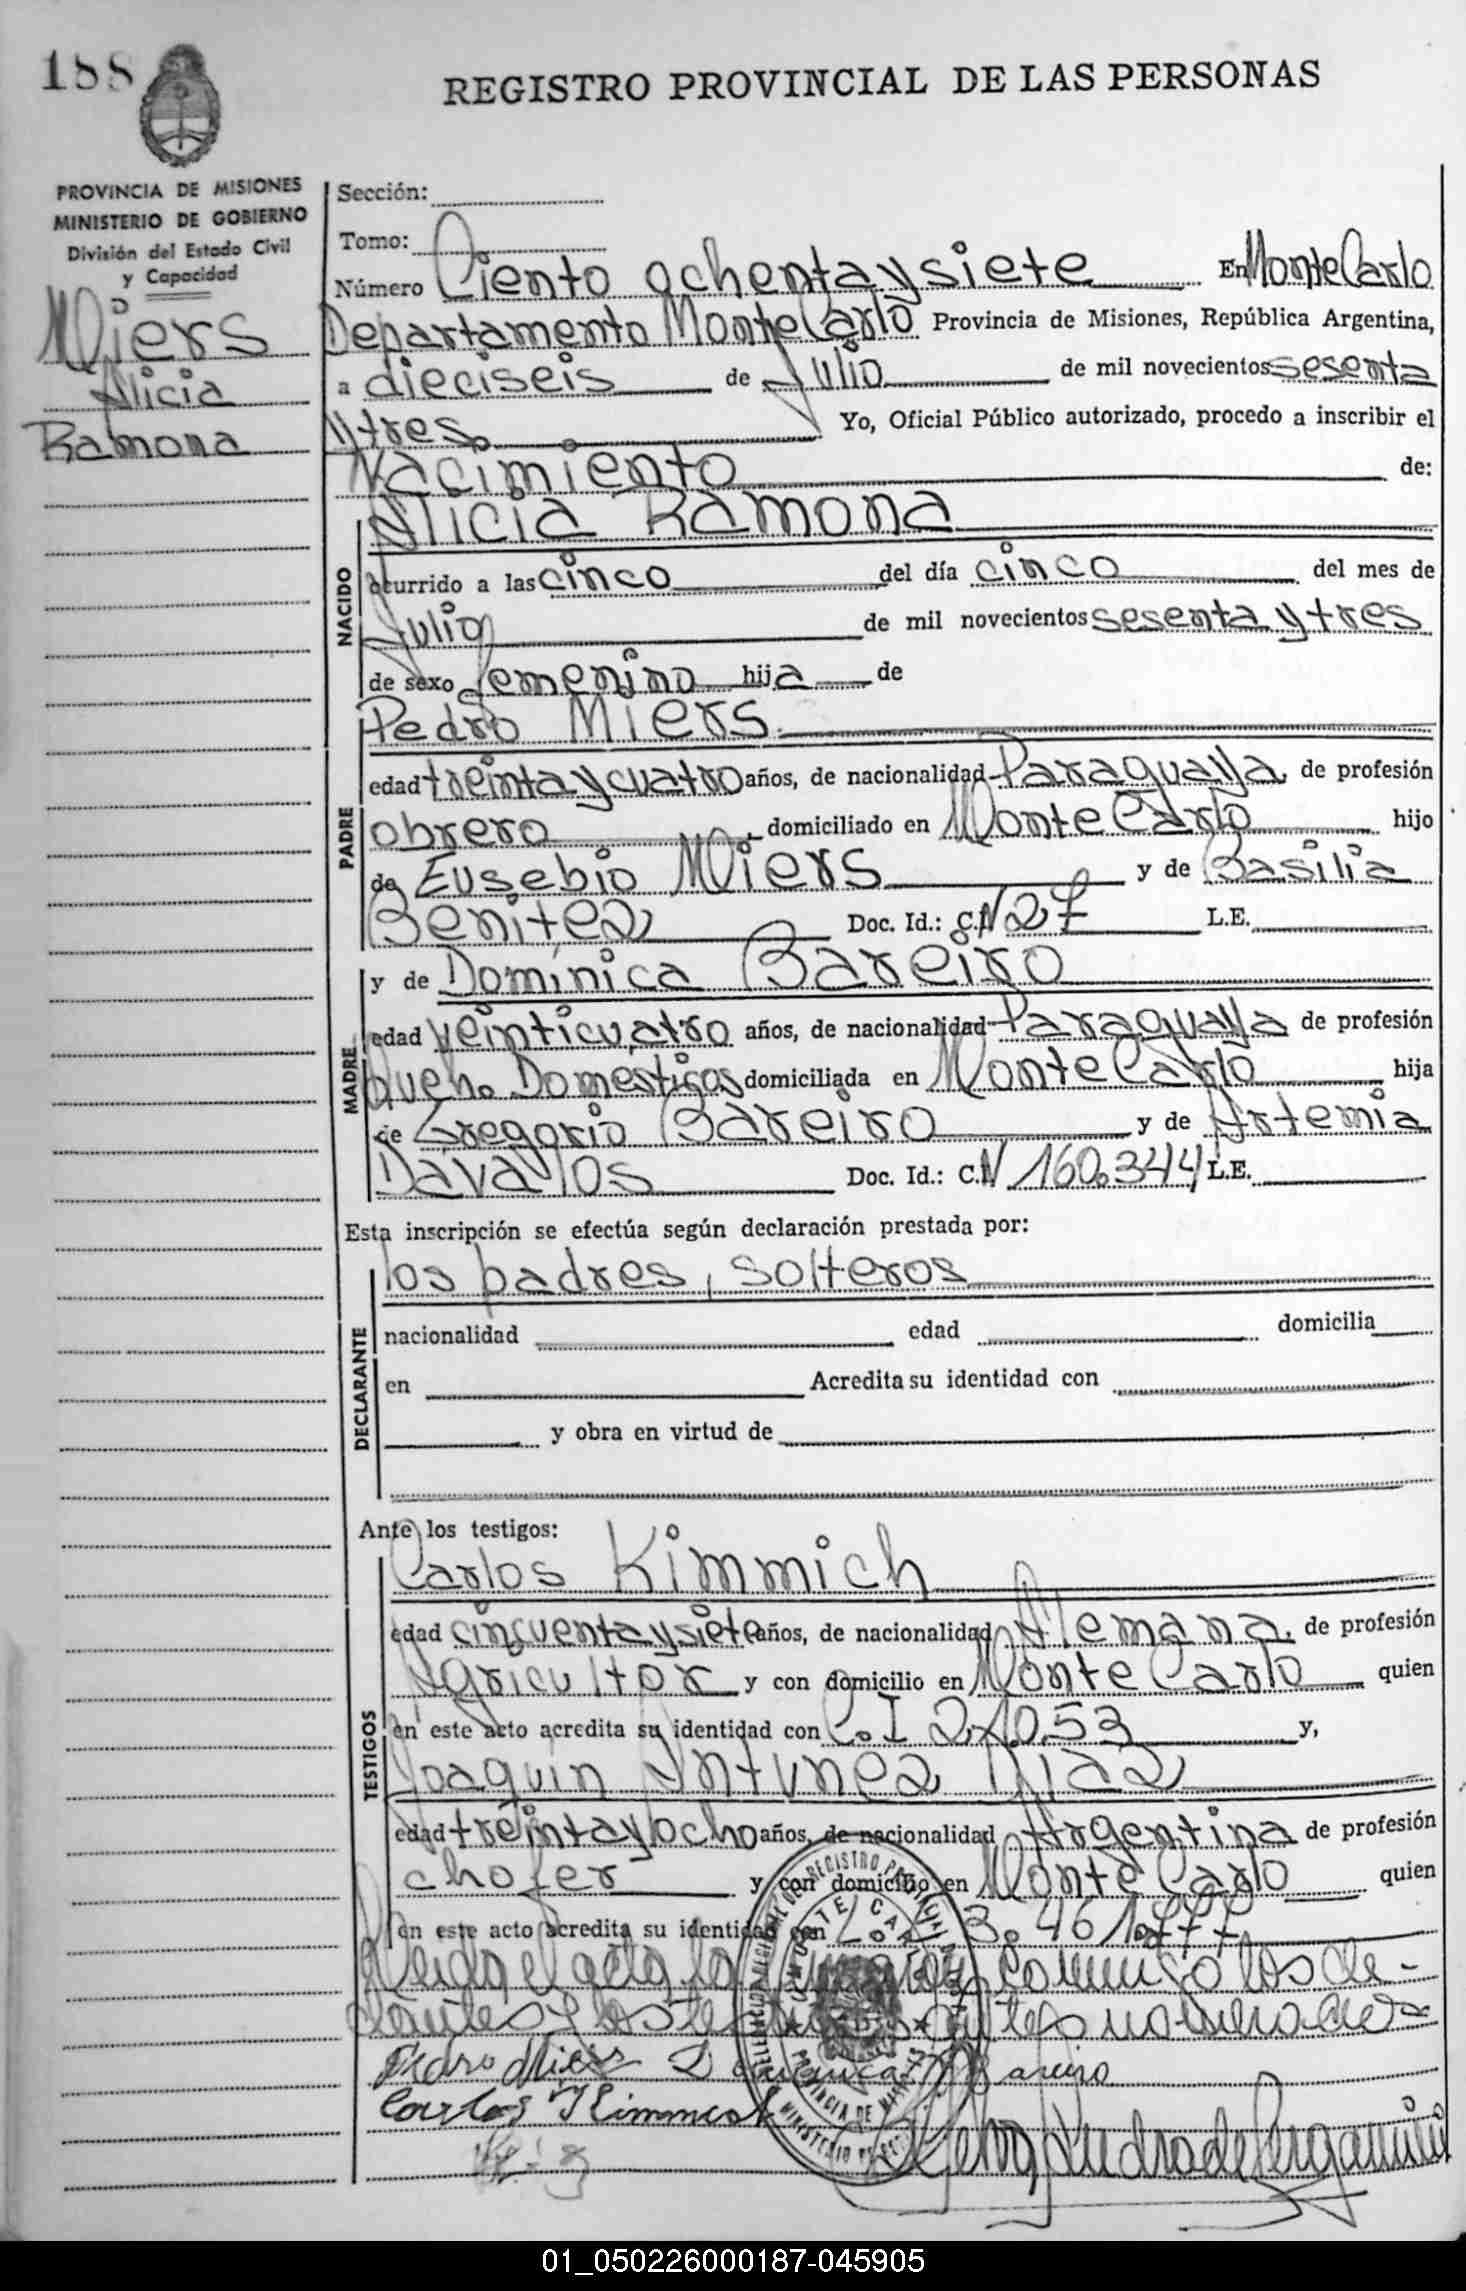 188
REGISTRO PROVINCIAL DE LAS PERSONAS
PROVINCIA DE MISIONES
MINISTERIO DE GOBIERNO
División del Estado Civil
y Capacidad
Miers
Alicia
Ramona
Sección:
Tomo:
Número Ciento ochenta y siete En Monte Carlo
Departamento Monte Carlo Provincia de Misiones, República Argentina,
a dieciseis de Julio de mil novecientos sesenta
y tres. Yo, Oficial Público autorizado, procedo a inscribir el
Nacimiento de:
NACIDO
Alicia Ramona
ocurrido a las cinco del día cinco del mes de
Julio de mil novecientos sesenta y tres
de sexo femenino hija de
PADRE
Pedro Miers
edad treinta y cuatro años, de nacionalidad Paraguaya de profesión
obrero, domiciliado en Monte Carlo hijo
de Eusebio Miers y de Basilia
Benitez Doc. Id.: C.N 27 L.E.
MADRE
y de Dominica Bareiro
edad veinticuatro años, de nacionalidad Paraguaya de profesión
Queh. Domesticos domiciliada en Monte Carlo hija
de Gregorio Bareiro y de Artemia
Davalos Doc. Id.: C.N 160.344 L.E.
Esta inscripción se efectúa según declaración prestada por:
DECLARANTE
los padres, solteros
nacionalidad edad domicilia
en Acredita su identidad con
y obra en virtud de
Ante los testigos:
TESTIGOS
Carlos Kimmich
edad cincuenta y siete años, de nacionalidad Alemana, de profesión
Agricultor y con domicilio en Monte Carlo quien
en este acto acredita su identidad con C.I y,
Joaquin Antunez Diaz
edad treinta y ocho años, de nacionalidad Argentina de profesión
chofer y con domicilio en Monte Carlo quien
en este acto acredita su identidad con 3.461.
Leida el acta la conmigo los de-
clarantes y los testigos antes nombrados
Pedro Miers Dominica Bareiro
Carlos Kimmich
01_050226000187-045905